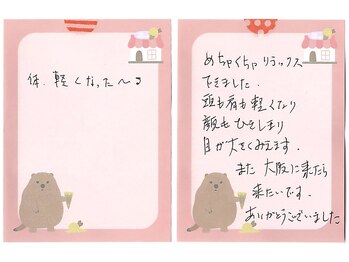 体、軽くなった〜♪
めちゃくちゃリラックス
できました。
頭も肩も軽くなり
顔もひきしまり
目が大きくみえます。
また大阪に来たら
来たいです。
ありがとうございました